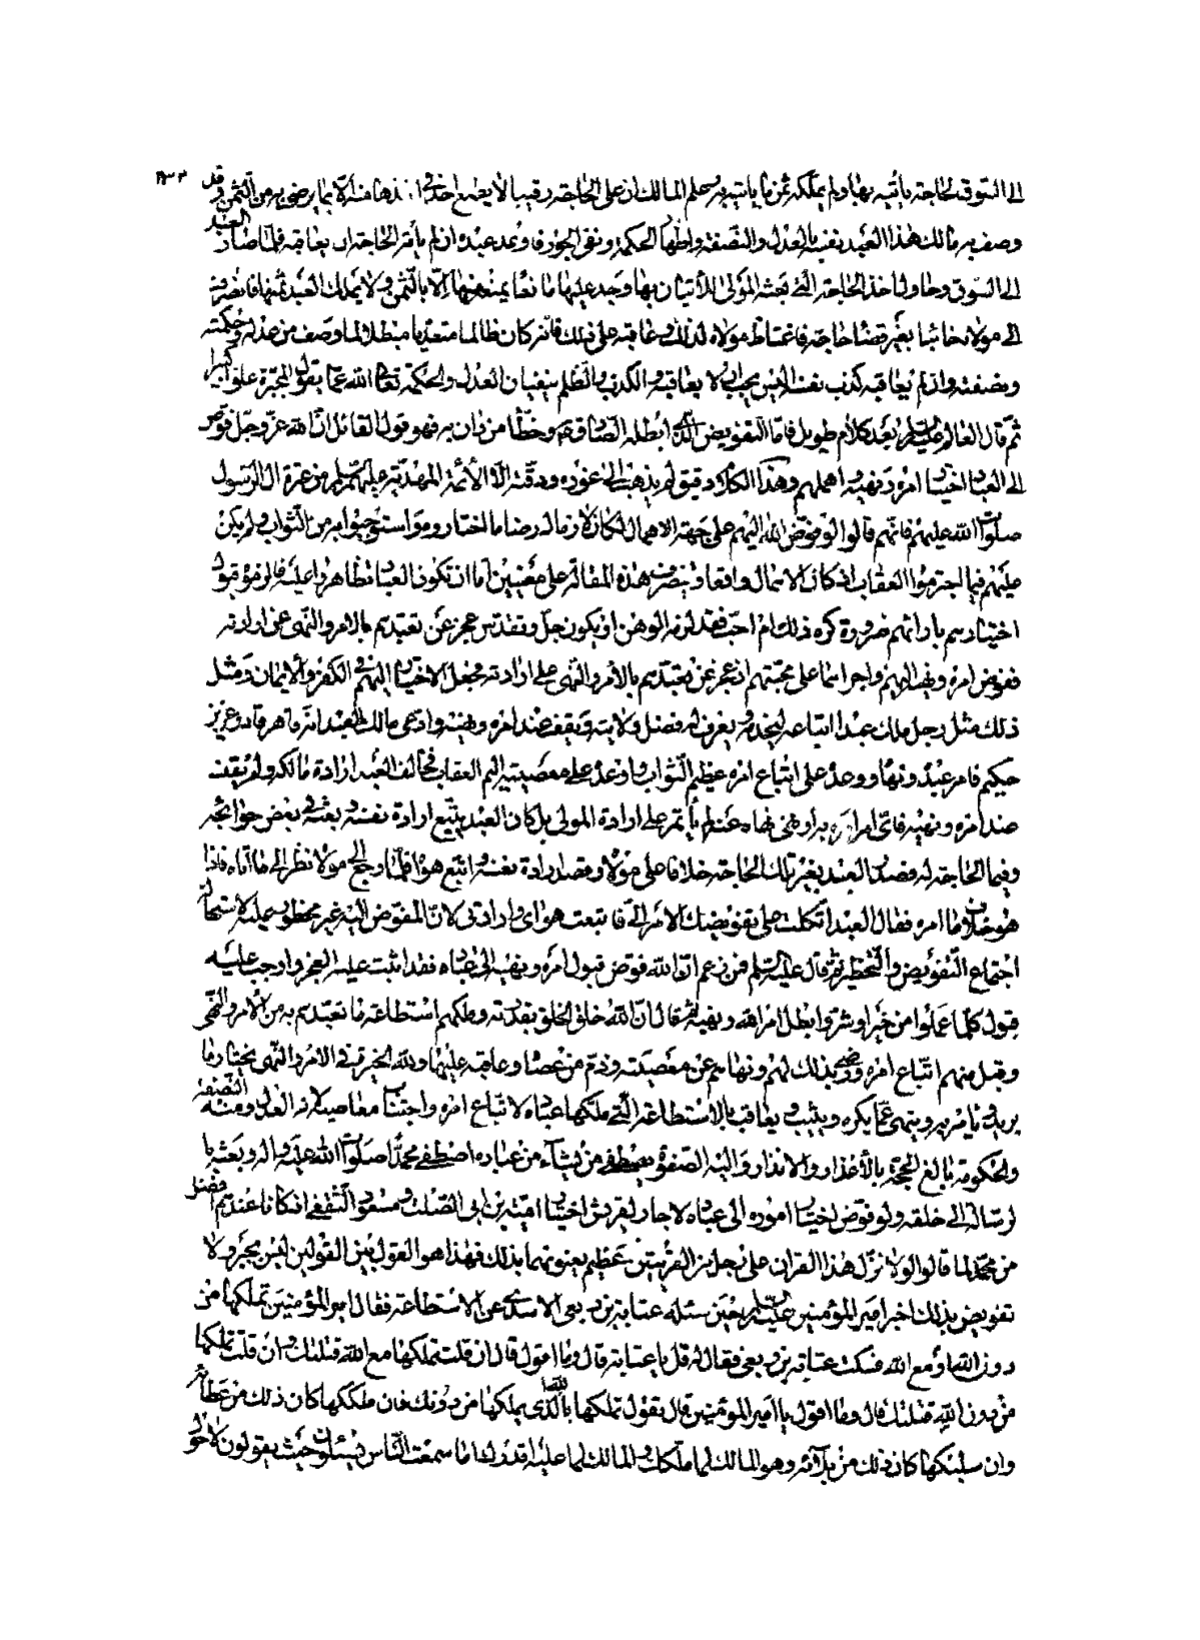 الى السوق لحاجة يأتيه بها ولم يملكه ثمن ما يأتيه به وعلم المالك ان على الحاجة رقيبا لا يطمع احد فى اخذها منه الا بما يرضى به من الثمن وقد
وصف به مالك هذا العبد نفسه بالعدل والنصفة واظهار الحكمة ونفى الجور فاوعد عبده ان لم يأته بالحاجة ان يعاقبه فلما صار العبد
الى السوق وحاول اخذ الحاجة التى بعثه المولى للاتيان بها وجد عليها مانعا يمنعه منها الا بالثمن ولا يملك العبد ثمنها فانصرف
الى مولاه خائبا بغير قضاء حاجته فاغتاظ مولاه لذلك وعاقبه على ذلك فانه كان ظالما متعديا مبطلا لما وصف من عدله وحكمته
ونصفته وان لم يعاقبه كذب نفسه اليس يجب ان لا يعاقبه والكذب والظلم ينفيان العدل والحكمة تعالى الله عما يقول المجبرة علوا كبيرا
ثم قال العالم عليه السلم بعد كلام طويل فاما التفويض الذى ابطله الصادق ع وخطأ من دان به فهو قول القائل ان الله عز وجل فوض
الى العباد اختيار امره ونهيه واهملهم وهذا الكلام دقيق لم يذهب الى غوره ودقته الا الائمة المهدية عليهم السلم من عترة ال الرسول
صلوات الله عليهم فانهم قالوا لو فوض الله اليهم على جهة الاهمال لكان لازما له رضا ما اختاروه واستوجبوا به من الثواب ولم يكن
عليهم فيما اجترموا العقاب اذ كان الاهمال واقعا وتنصرف هذه المقالة على معنيين اما ان تكون العباد تظاهروا عليه فالزموه قبول
اختيارهم بارائهم ضرورة كره ذلك ام احب فقد لزمه الوهن او يكون جل وتقدس عجز عن تعبدهم بالامر والنهى عن ارادته
ففوض امره ونهيه اليهم واجراهما على محبتهم اذ عجز عن تعبدهم بالامر والنهى على ارادته فجعل الاختيار اليهم فى الكفر والايمان ومثل
ذلك مثل رجل ملك عبدا ابتاعه ليخدمه ويعرف له فضل ولايته ويقف عند امره ونهيه وادعى مالك العبد انه قاهر قادر عزيز
حكيم فامر عبده ونهاه ووعده على اتباع امره عظيم الثواب واوعده على معصيته اليم العقاب فخالف العبد ارادة مالكه ولم يقف
عند امره ونهيه فاى امر امره به او نهى نهاه عنه لم يأتمر على ارادة المولى بل كان العبد يتبع ارادة نفسه وبعثه فى بعض حوائجه
وفيما الحاجة له فصدر العبد بغير تلك الحاجة خلافا على مولاه وقصد ارادة نفسه واتبع هواه فلما رجع الى مولاه نظر الى ما اتاه فاذا
هو خلاف ما امره فقال العبد اتكلت على تفويضك الامر الى فاتبعت هواى وارادتى لان المفوض اليه غير محظور عليه لاستحالة
اجتماع التفويض والتحظير ثم قال عليه السلم فمن زعم ان الله فوض قبول امره ونهيه الى عباده فقد اثبت عليه العجز واوجب عليه
قبول كلما عملوا من خير او شر وابطل امر الله ونهيه ثم قال ان الله خلق الخلق بقدرته وملكهم استطاعة ما تعبدهم به من الامر والنهى
وقبل منهم اتباع امره ورضى بذلك لهم ونهاهم عن معصيته وذم من عصاه وعاقبه عليها ولله الخيرة فى الامر والنهى يختار ما
يريد ويأمر به وينهى عما يكره ويثيب ويعاقب بالاستطاعة التى ملكها عباده لاتباع امره واجتناب معاصيه لانه العدل ومنه النصفة
والحكومة بالغ الحجة بالاعذار والانذار واليه الصفوة يصطفى من يشاء من عباده اصطفى محمدا صلوات الله عليه واله وبعثه با
لرسالة الى خلقه ولو فوض اختيار اموره الى عباده لاجاز لقريش اختيار امية بن ابى الصلت ومسعود الثقفى اذ كانا عندهم افضل
من محمد لما قالوا لولا نزل هذا القران على رجل من القريتين عظيم يعنونهما بذلك فهذا هو القول بين القولين ليس بجبر ولا
تفويض بذلك اخبر امير المؤمنين عليه السلم حين سئله عتابة بن ربعى الاسدى عن الاستطاعة فقال امير المؤمنين تملكها من
دون الله او مع الله فسكت عتابة بن ربعى فقال له قل يا عتابة قال وما اقول قال ان قلت تملكها مع الله قتلتك وان قلت تملكها
من دون الله قتلتك قال وما اقول يا امير المؤمنين قال تقول تملكها بالله الذى يملكها من دونك فان ملككها كان ذلك من عطائه
وان سلبكها كان ذلك من بلائه وهو المالك لما ملكك والمالك لما عليه اقدرك اما سمعت الناس يسئلون حيث يقولون لا حول